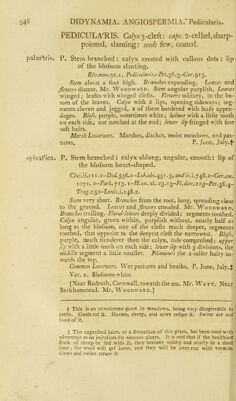 548 DIDYNAMIA. ANGIOSPERMIA. Pedicularis.
PEDICULARIS. Calyx 5-cleft: caps. 2-celled, sharp-
pointed, slanting: seeds few, coated.
palustris. P. Stem branched: calyx crested with callous dots: lip
of the blossom slanting.
Stem about a foot high. Branches expanding. Leaves and
flowers distant. Mr. WOODWARD. Stem angular purplish. Leaves
winged; leafits with winged clefts. Flowers solitary, in the bo-
som of the leaves. Calyx with 2 lips, opening sideways; seg-
ments cloven and jagged, 2 of them bordered with leafy appen-
dages. Bloss. purple, sometimes white; lower with a little tooth
on each side, not notched at the end; lower lip fringed with fine
soft hairs.
Marsh Lousewort. Marshes, ditches, moist meadows, and pas-
tures. P. June, July.†
sylvatica. P. Stem branched: calyx oblong, angular, smooth: lip of
the blossom heart-shaped.
Stem very short. Branches from the root, long, spreading close
to the ground. Leaves and flowers crowded. Mr. WOODWARD.
Branches trailing. Floral-leaves deeply divided; segments toothed.
Calyx angular, green or white, purplish without, nearly half as
long as the blossom, one of the clefts much deeper, segments
toothed, that opposite to the deepest cleft the narrowest. Bloss.
purple, much slenderer than the calyx, tube compressed; upper
lip with a little tooth on each side; lower lip with 3 divisions, the
middle segment a little smaller. Filaments the 2 taller hairy to-
wards the top.
Common Lousewort. Wet pastures and heaths. P. June, July.‡
Var. 2. Blossoms white.
[Near Redruth, Cornwall, towards the sea. Mr. WATT. Near
Berkhamstead. Mr. WOODWARD.]
† This is an unwelcome guest in meadows, being very disagreeable to
cattle. Goats eat it. Horses, sheep, and cows refuse it. Swine are not
fond of it.
‡ The expressed juice, or a decoction of this plant, has been used with
advantage as an injection for sinuous ulcers. It is said that if the healthiest
flock of sheep be fed with it, they become scabby and scurfy in a short
time; the wool will get loose, and they will be over-run with vermin.
Cows and swine refuse it.